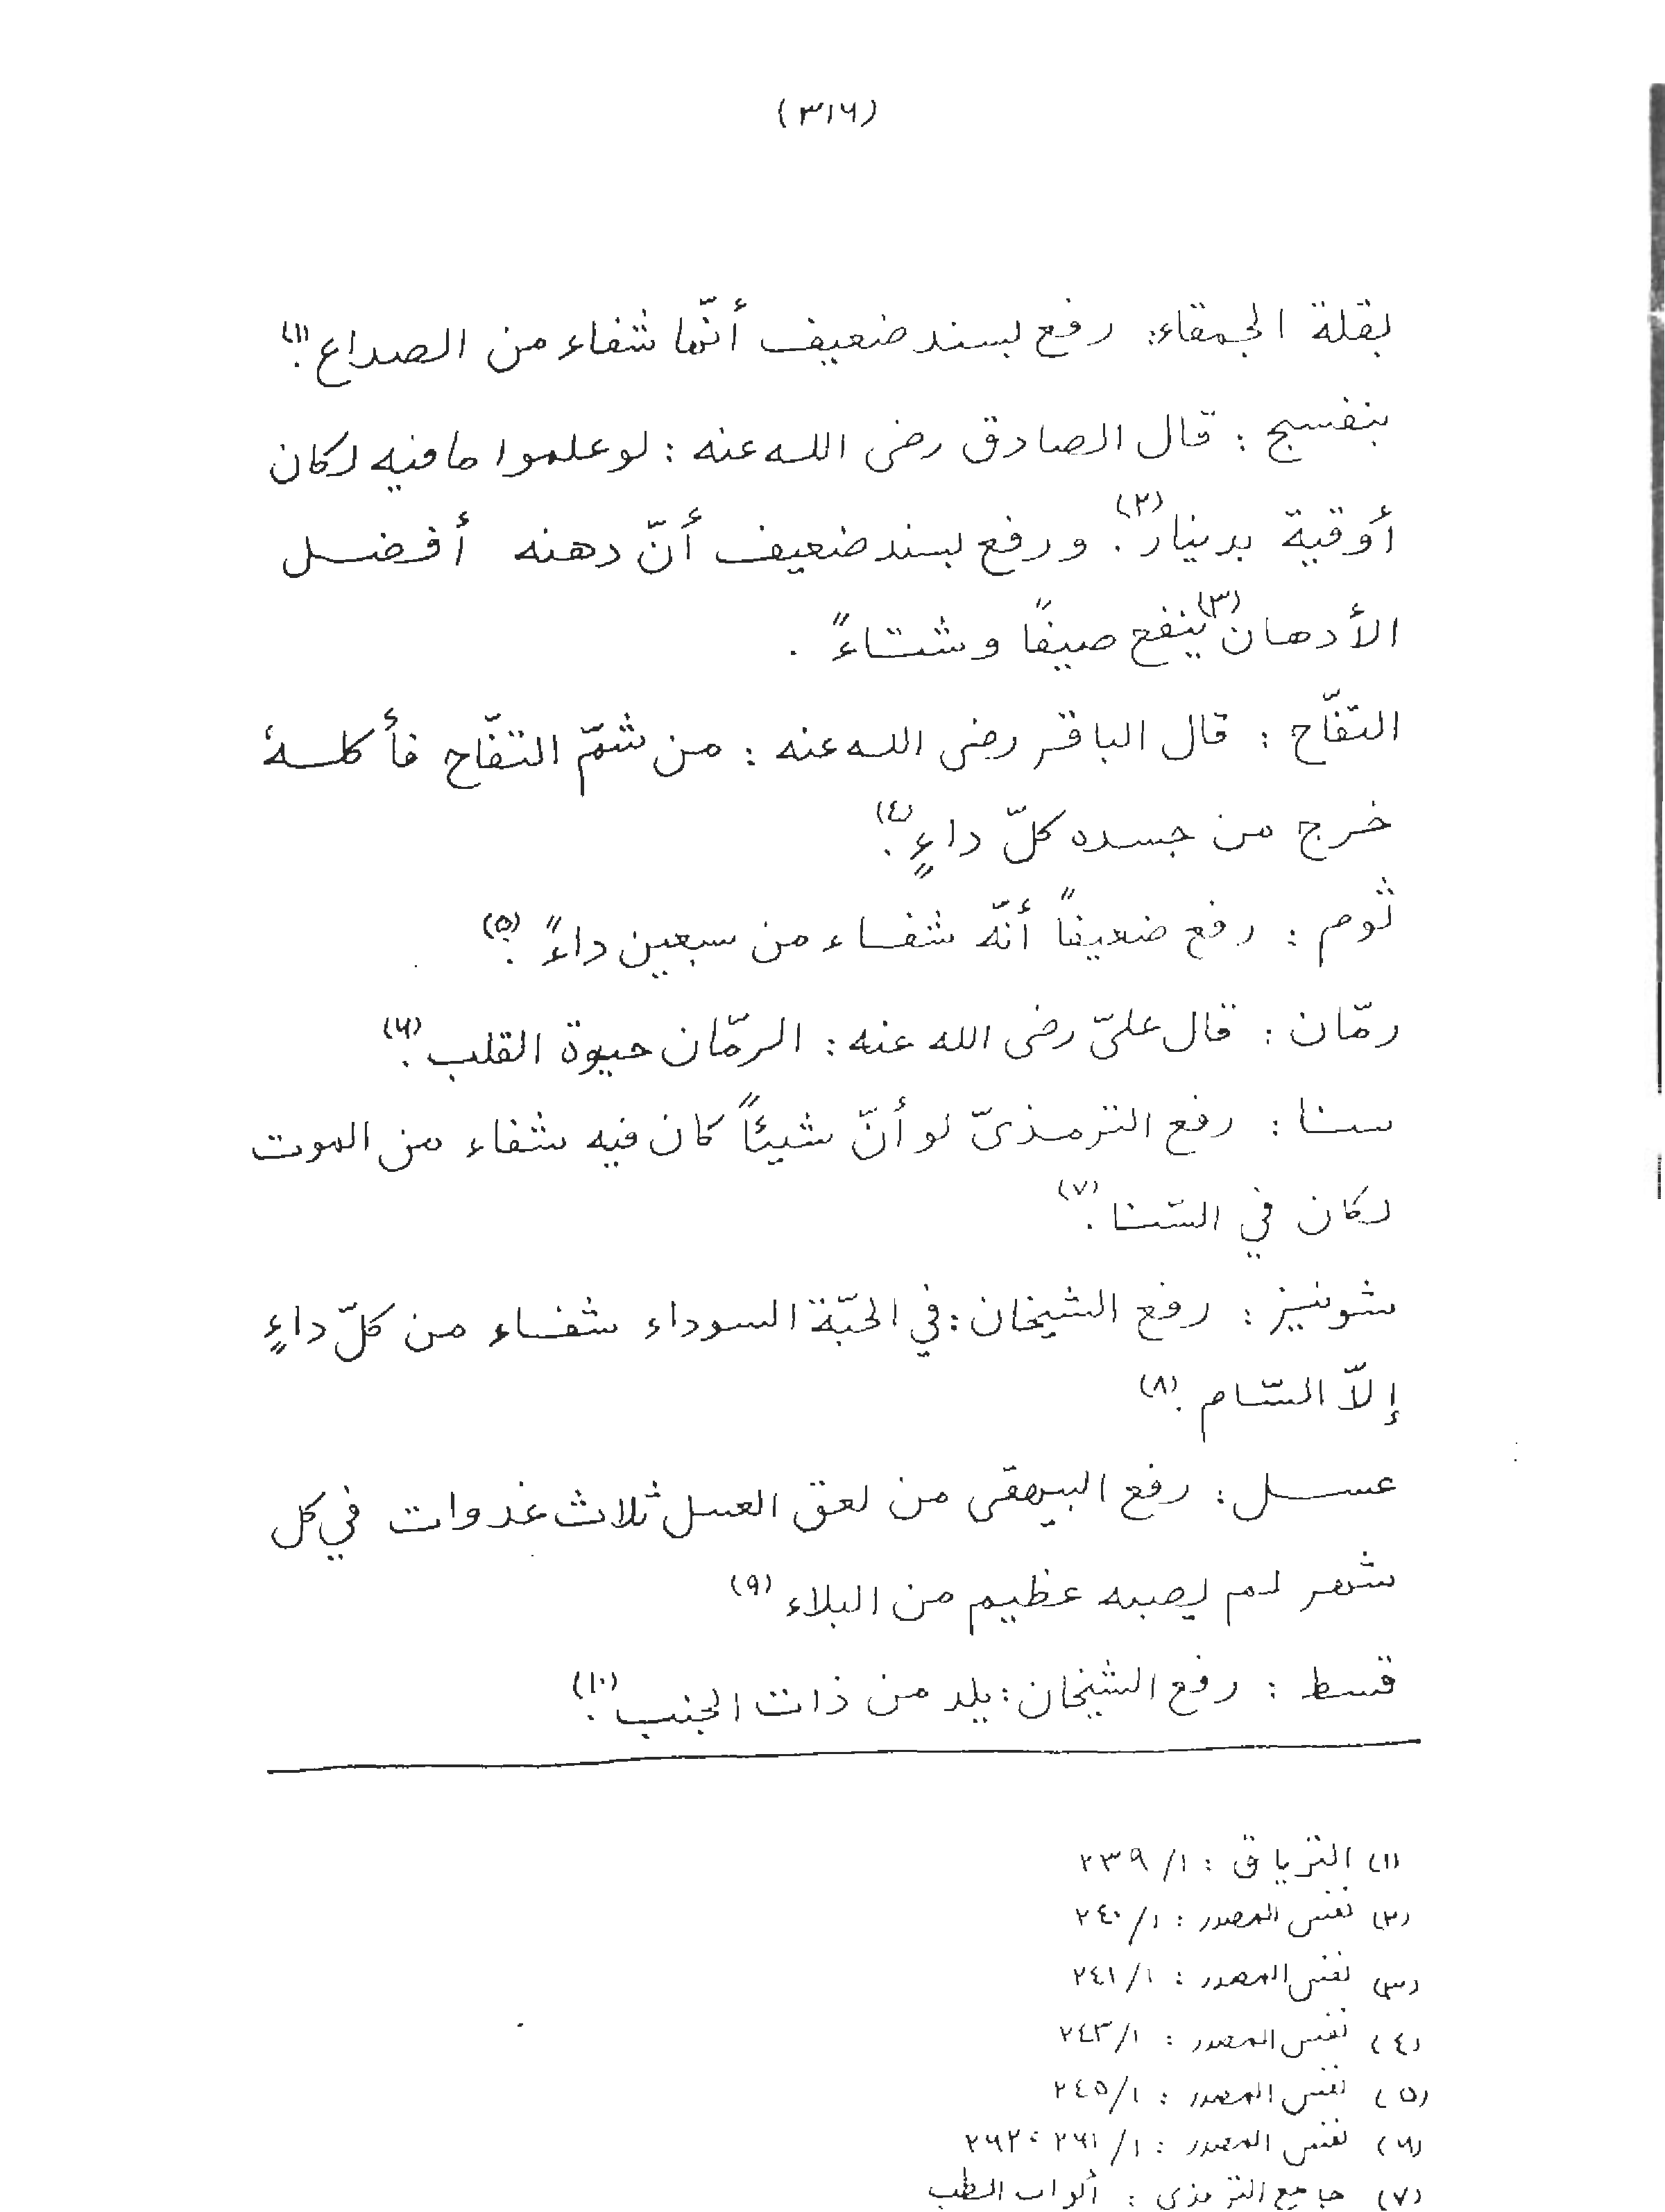 (٣١٦)
بقلة الحمقاء: رفع بسند ضعيف أنّها شفاء من الصداع.(١)
بنفسج : قال الصادق رضى الله عنه : لو علموا ما فيه لكان
أوقية بدينار(٢). ورفع بسند ضعيف أنّ دهنه أفضل
الأدهان(٣) ينفع صيفًا وشتاءً .
التفّاح : قال الباقر رضى الله عنه : من شمّ التفّاح فأكله
خرج من جسده كلّ داءٍ.(٤)
ثوم : رفع ضعيفاً أنّه شفاء من سبعين داءً.(٥)
رمّان : قال علىّ رضى الله عنه : الرمّان حيوة القلب.(٦)
سنا : رفع الترمذىّ لو أنّ شيئاً كان فيه شفاء من الموت
لكان في السّنا.(٧)
شونيز : رفع الشيخان : في الحبّة السوداء شفاء من كلّ داءٍ
إلاّ السّام.(٨)
عسل : رفع البيهقى من لعق العسل ثلاث غدوات في كل
شهر لم يصبه عظيم من البلاء (٩)
قسط : رفع الشيخان : يلد من ذات الجنب.(١٠)
(١) الترياق : ١/ ٢٣٩
(٢) نفس المصدر : ١/ ٢٤٠
(٣) نفس المصدر : ١/ ٢٤١
(٤) نفس المصدر : ١/ ٢٤٣
(٥) نفس المصدر : ١/ ٢٤٥
(٦) نفس المصدر : ١/ ٢٦١، ٢٦٢
(٧) جامع الترمذى : أبواب الطب